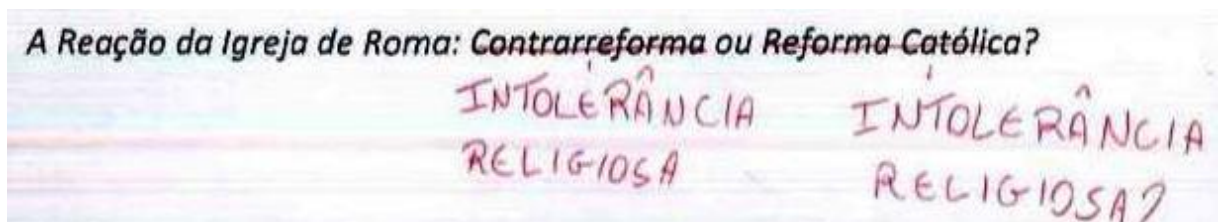 A Reação da Igreja de Roma: Contrarreforma ou Reforma Católica?
INTOLERÂNCIA INTOLERÂNCIA
RELIGIOSA RELIGIOSA?